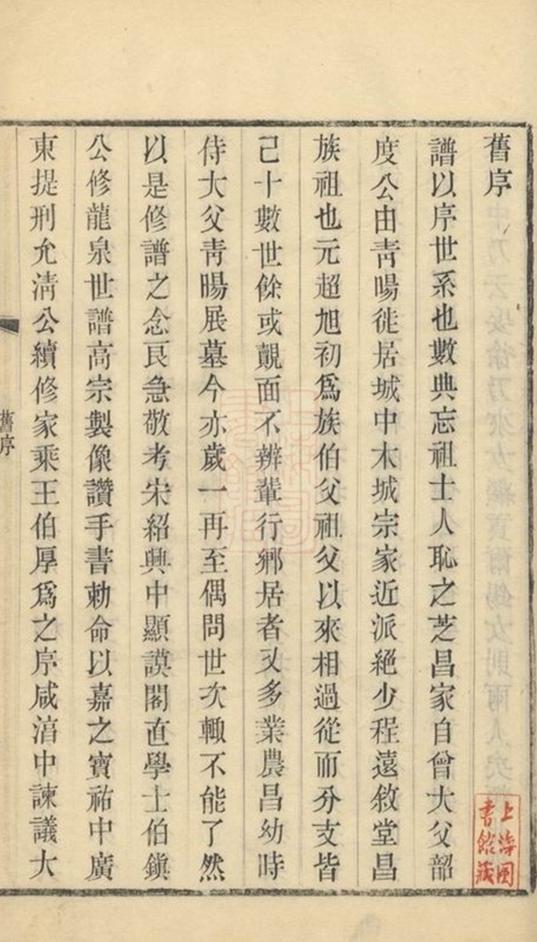 舊序
譜以序世系也數典忘祖士人恥之芝昌家自曾大父韶
度公由靑暘徙居城中木城宗家近派絕少程遠敘堂昌
族祖也元超旭初爲族伯父祖父以來相過從而分支皆
已十數世餘或覿面不辨輩行鄉居者又多業農昌幼時
侍大父靑暘展墓今亦歲一再至偶問世次輒不能了然
以是修譜之念艮急敬考宋紹興中顯謨閣直學士伯鎭
公修龍泉世譜高宗製像讚手書勅命以嘉之寶祐中廣
東提刑允淸公續修家乘王伯厚爲之序咸淳中諫議大
舊序
上海圖書館藏